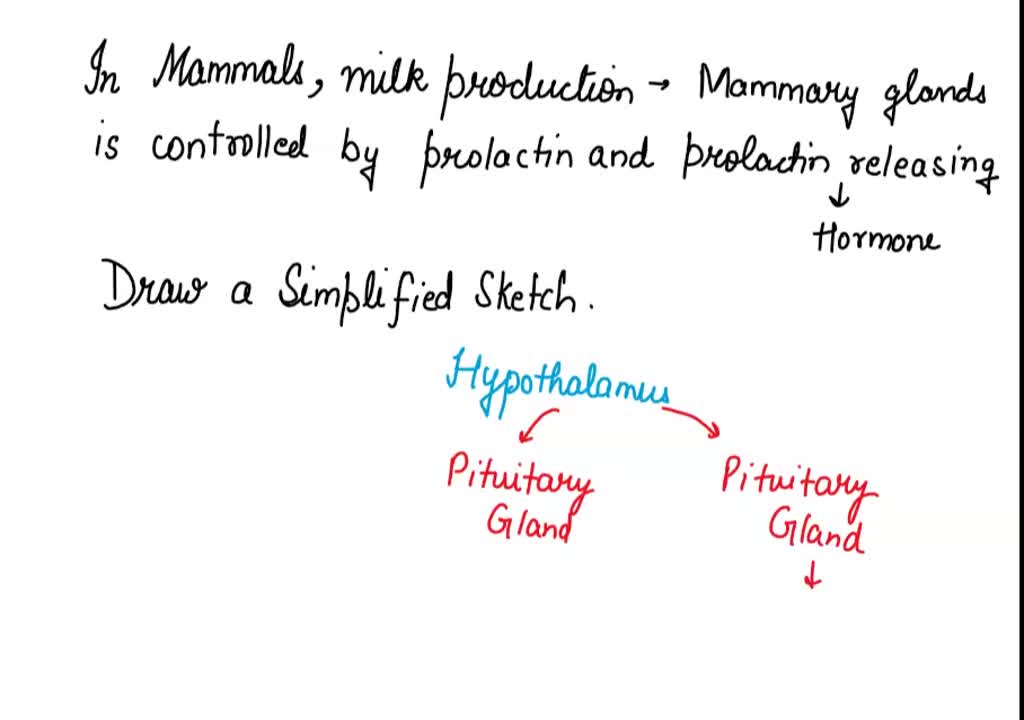 In Mammals, milk production → Mammary glands
is controlled by prolactin and prolactin releasing
↓
Hormone
Draw a Simplified Sketch.
Hypothalamus
Pituitary Pituitary
Gland Gland
↓